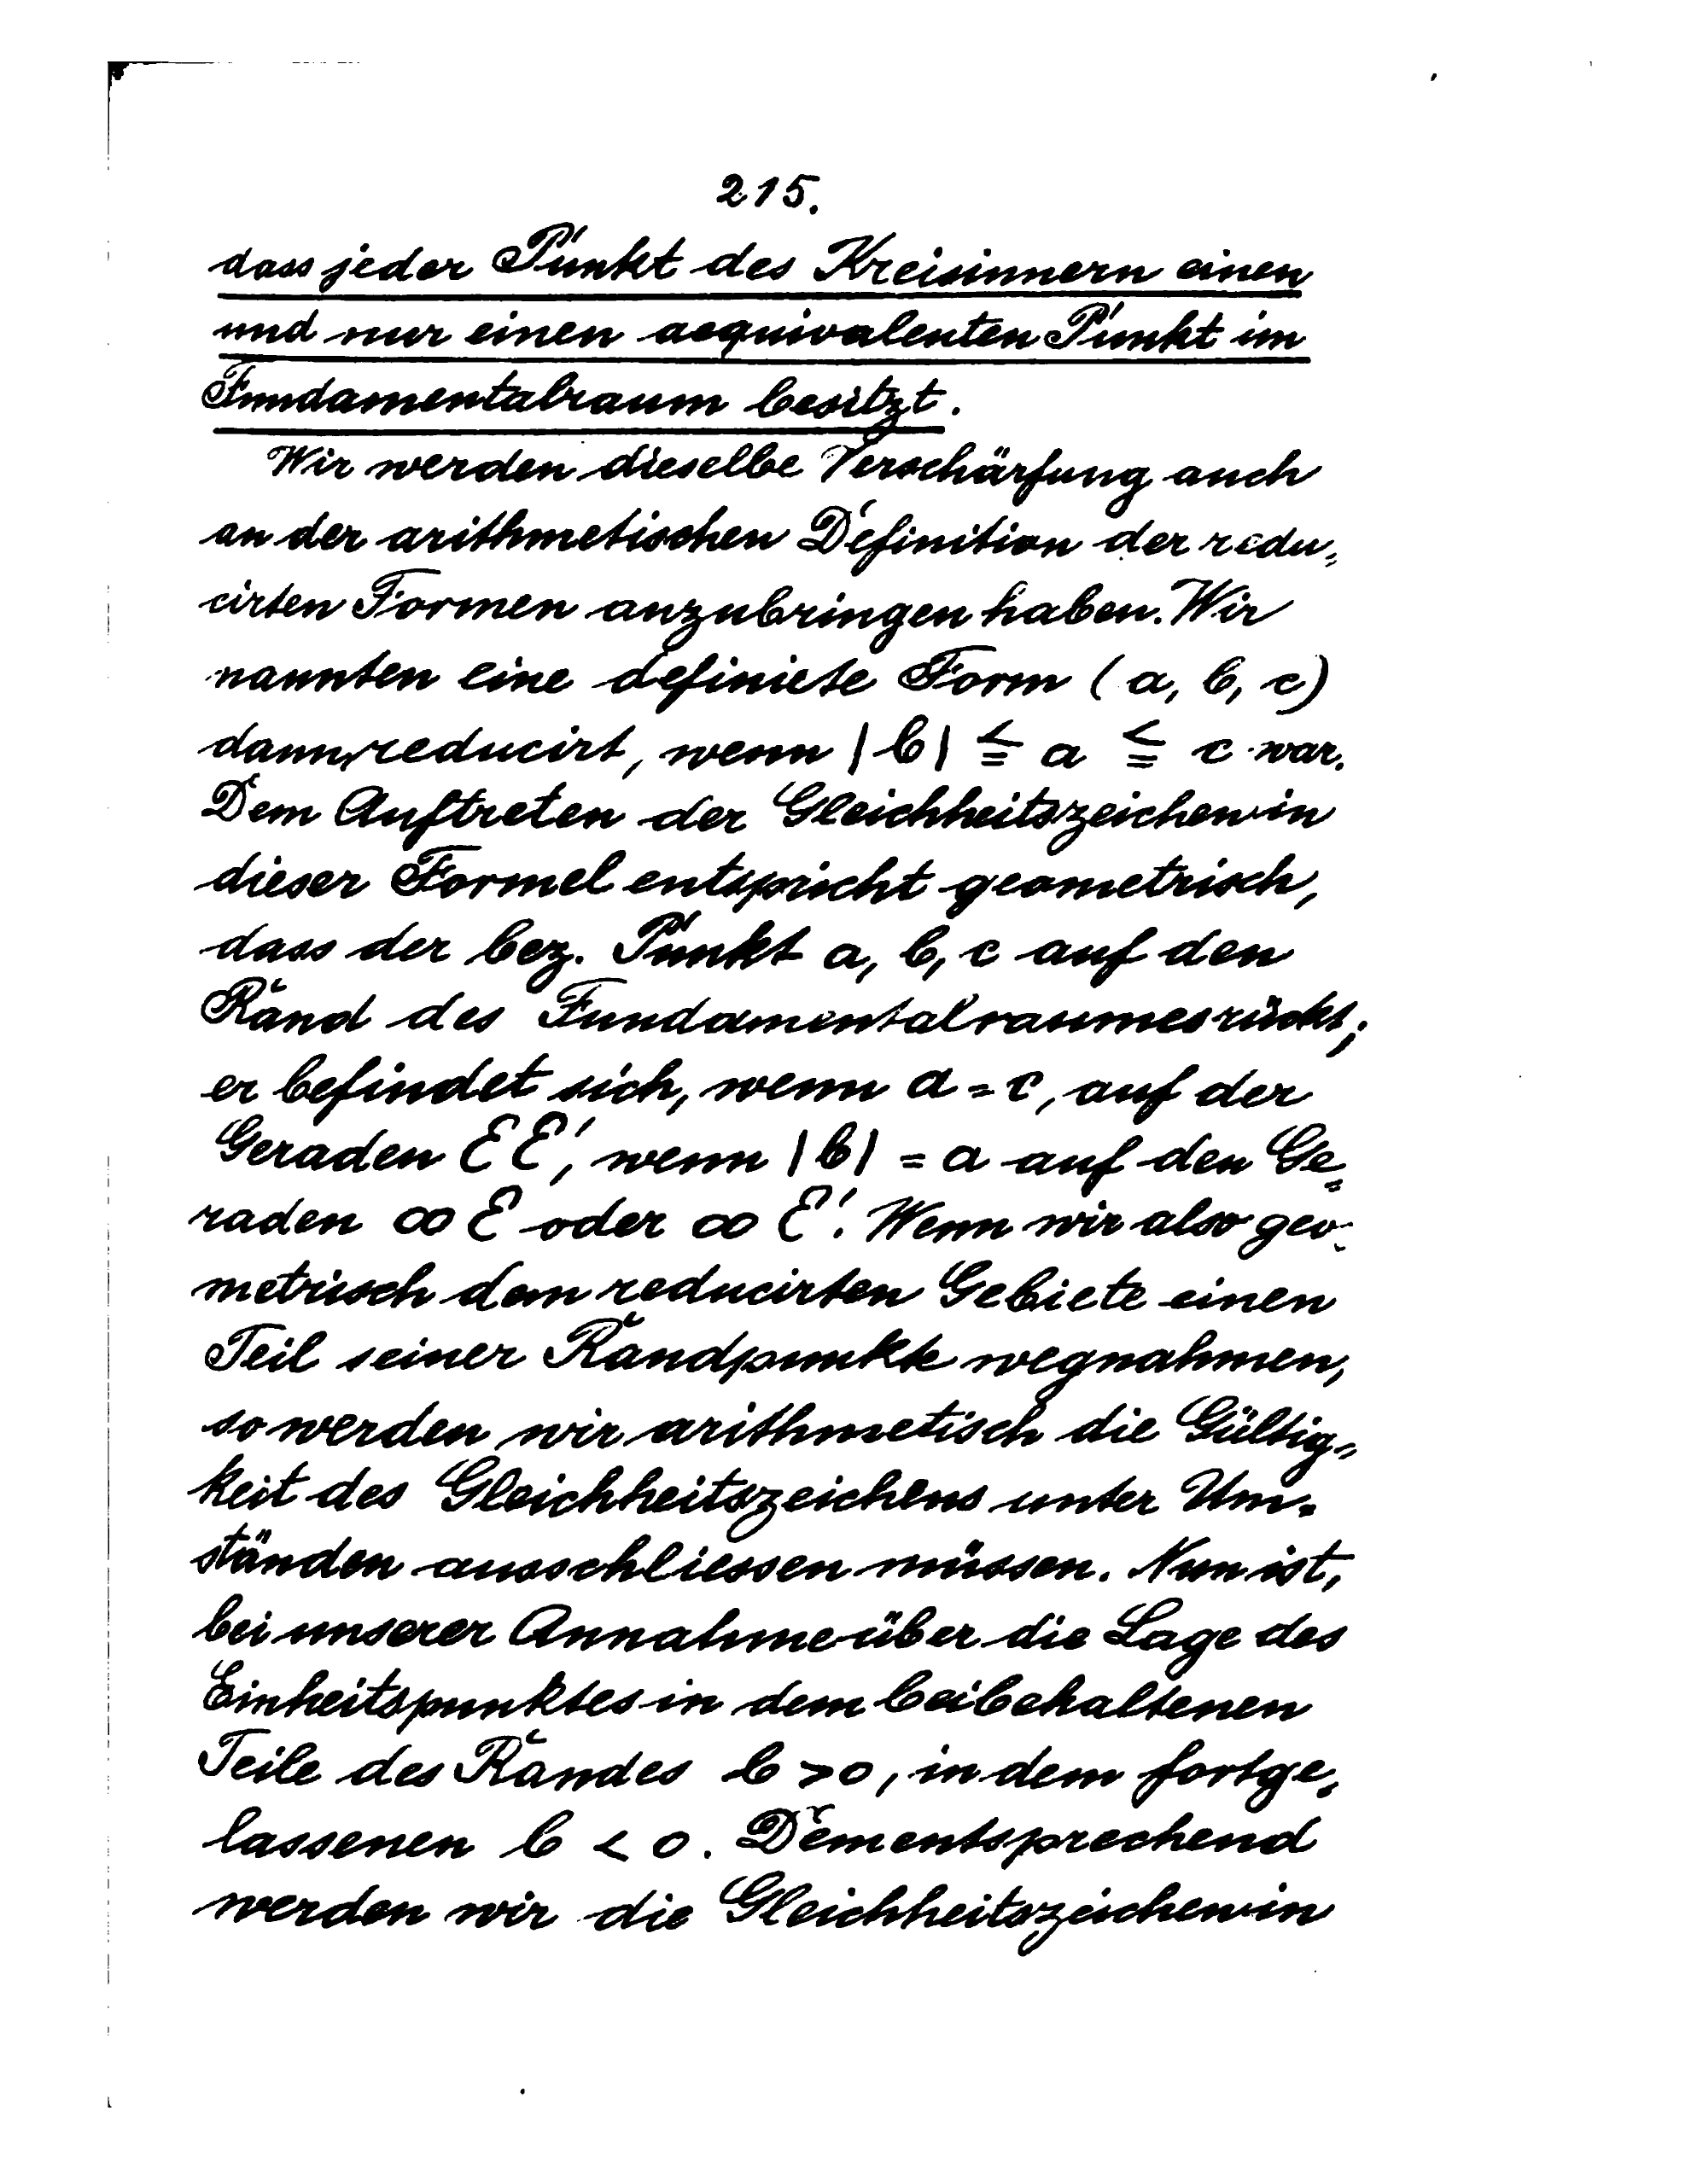 215.
dass jeder Punkt des Kreisinnern einen
und nur einen aequivalenten Punkt im
Fundamentalraum besitzt.
Wir werden dieselbe Verschärfung auch
an der arithmetischen Definition der redu=
cirten Formen anzubringen haben. Wir
nannten eine definite Form (a, b, c)
dann reducirt, wenn |b| ≦ a ≦ c war.
Dem Auftreten der Gleichheitszeichen in
dieser Formel entspricht geometrisch,
dass der bez. Punkt a, b, c auf den
Rand des Fundamentalraumes rückt;
er befindet sich, wenn a = c, auf der
Geraden ℰℰ', wenn |b| = a auf den Ge=
raden ∞ℰ oder ∞ℰ'. Wenn wir also geo=
metrisch dem reducirten Gebiete einen
Teil seiner Randpunkte wegnahmen,
so werden wir arithmetisch die Gültig=
keit des Gleichheitszeichens unter Um=
ständen ausschliessen müssen. Nun ist,
bei unserer Annahme über die Lage des
Einheitspunktes in dem beibehaltenen
Teile des Randes b > 0, in dem fortge=
lassenen b < 0. Dementsprechend
werden wir die Gleichheitszeichen in